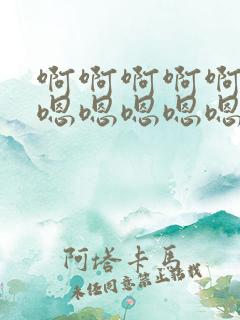 啊啊啊啊啊
嗯嗯嗯嗯嗯
阿塔卡马
未经同意禁止转载